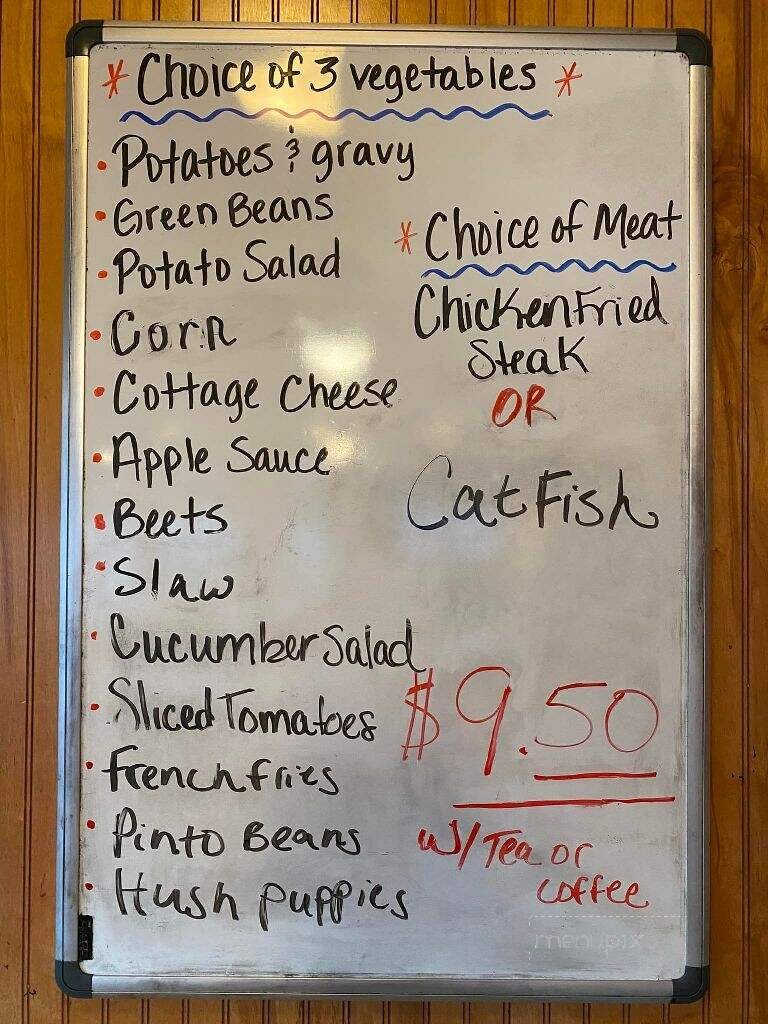 * Choice of 3 vegetables *
• Potatoes & gravy
• Green Beans
• Potato Salad
• Corn
• Cottage Cheese
• Apple Sauce
• Beets
• Slaw
• Cucumber Salad
• Sliced Tomatoes
• French fries
• Pinto Beans
• Hush puppies
* Choice of Meat
Chicken Fried
Steak
OR
CatFish
$9.50
w/Tea or
coffee
menupix